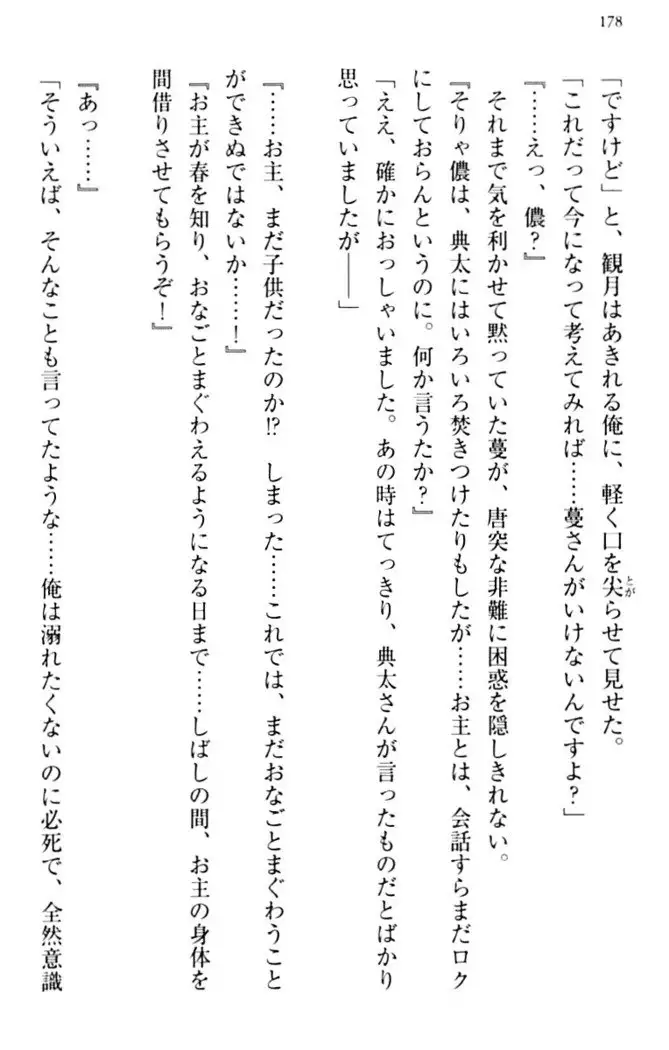 178
「ですけど」と、観月はあきれる俺に、軽く口を尖らせて見せた。
とが
「これだって今になって考えてみれば……蔓さんがいけないんですよ？」
『……えっ、儂？』
それまで気を利かせて黙っていた蔓が、唐突な非難に困惑を隠しきれない。
『そりゃ儂は、典太にはいろいろ焚きつけたりもしたが……お主とは、会話すらまだロク
にしておらんというのに。何か言うたか？』
「ええ、確かにおっしゃいました。あの時はてっきり、典太さんが言ったものだとばかり
思っていましたが――」
『……お主、まだ子供だったのか!?　しまった……これでは、まだおなごとまぐわうこと
ができぬではないか……！』
『お主が春を知り、おなごとまぐわえるようになる日まで……しばしの間、お主の身体を
間借りさせてもらうぞ！』
『あっ……』
「そういえば、そんなことも言ってたような……俺は溺れたくないのに必死で、全然意識